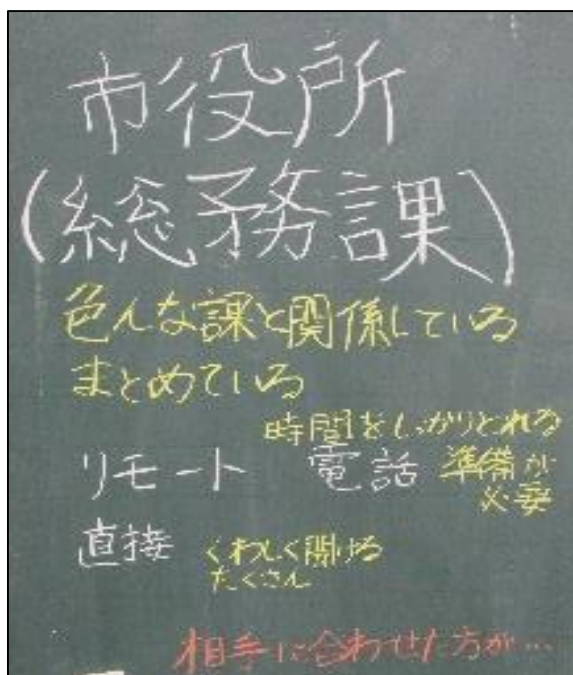 市役所
(総務課)
色んな課と関係している
まとめている
時間をしっかりとれる
リモート 電話 準備が
必要
直接 くわしく聞ける
たくさん
相手に合わせた方が…